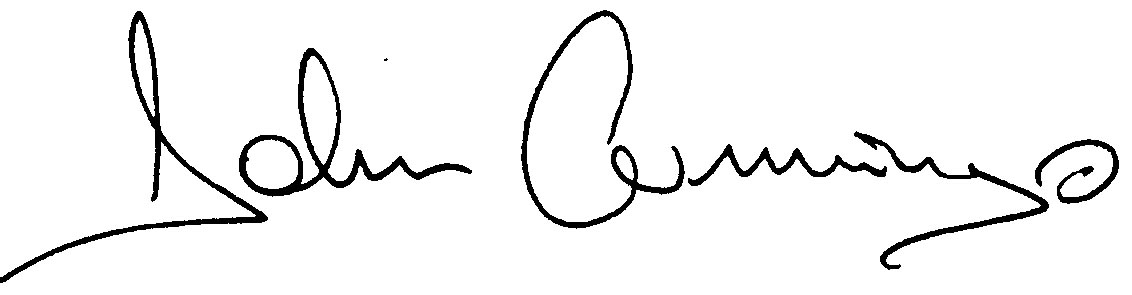 John Cummings